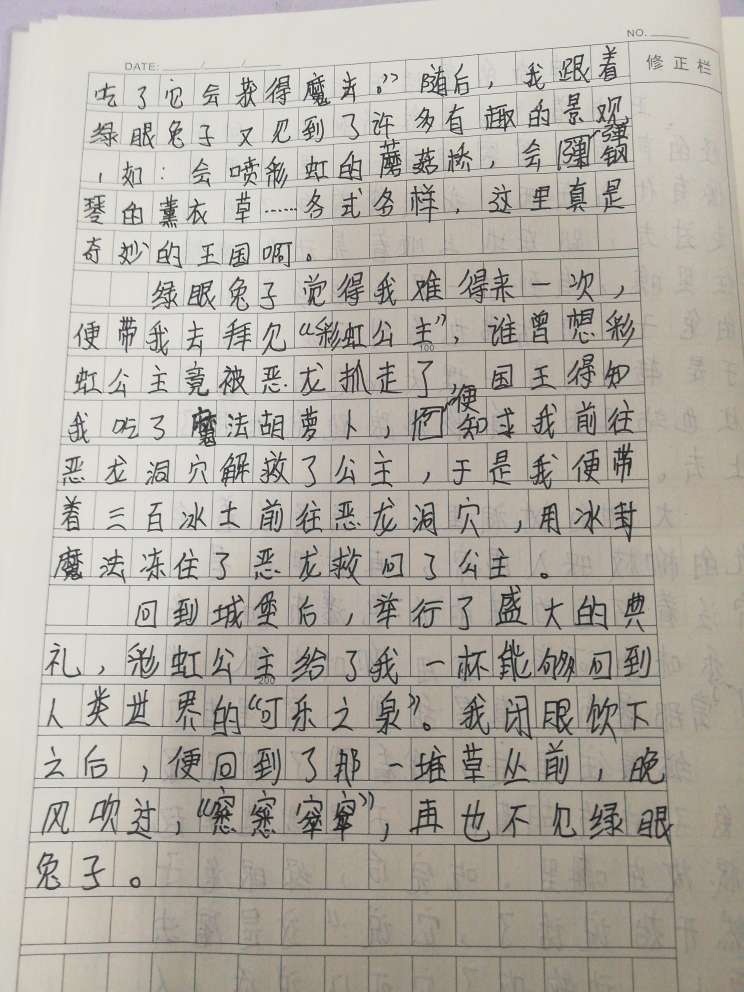 NO.
DATE: / /
修正栏
吃了它会获得魔法。”随后，我跟着
绿眼兔子又见到了许多有趣的景观
，如：会喷彩虹的蘑菇桥，会弹钢
琴的薰衣草……各式各样，这里真是
奇妙的王国啊。
绿眼兔子觉得我难得来一次，
便带我去拜见“彩虹公主”，谁曾想彩
100
虹公主竟被恶龙抓走了，国王得知
我吃了魔法胡萝卜，便知求我前往
恶龙洞穴解救了公主，于是我便带
着三百冰土前往恶龙洞穴，用冰封
魔法冻住了恶龙救回了公主。
回到城堡后，举行了盛大的典
礼，彩虹公主给了我一杯能够回到
200
人类世界的“可乐之泉”。我闭眼饮下
之后，便回到了那一堆草丛前，晚
风吹过，“窸窸窣窣”，再也不见绿眼
兔子。